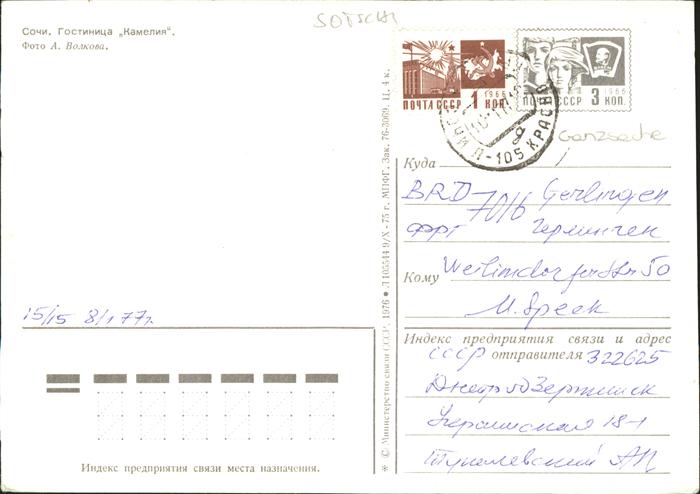 SOTSCHI
Сочи. Гостиница „Камелия".
Фото А. Волкова.
1966
ПОЧТА СССР 1 КОП.
1966
ПОЧТА СССР 3 КОП.
СОЧИ П-105 КРАСНО
Ganzsache
Куда
BRD 7016 Gerlingen
ФРГ Герлинген
Кому Weilimdorferstr 50
M. Speck
15/15 8/1 77г.
Индекс предприятия связи и адрес
отправителя 322625
СССР
Днепродзержинск
Украинская 18-1
Тупалевский АП
Индекс предприятия связи места назначения.
* © Министерство связи СССР, 1976 * Л 105544 9/X - 75 г. МПФГ. Зак. 76-3069. Ц. 4 к.